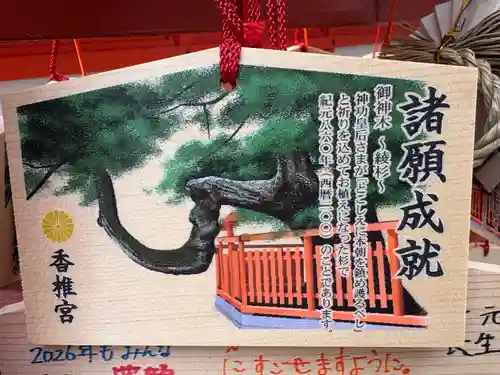 諸願成就
御神木　～綾杉～
神功皇后さまが「とこしえに本朝を鎮め護るべし」
と祈りを込めてお植えになった杉で
紀元八六〇年（西暦二〇〇）のことであります。
香椎宮
2026年も みんな
にすごせますように。